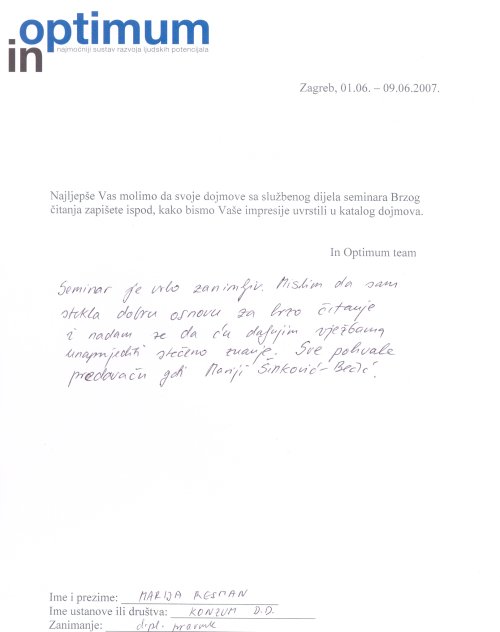 in optimum
najmoćniji sustav razvoja ljudskih potencijala
Zagreb, 01.06. – 09.06.2007.
Najljepše Vas molimo da svoje dojmove sa službenog dijela seminara Brzog
čitanja zapišete ispod, kako bismo Vaše impresije uvrstili u katalog dojmova.
In Optimum team
Seminar je vrlo zanimljiv. Mislim da sam
stekla dobru osnovu za brzo čitanje
i nadam se da ću daljnjim vježbama
unaprijediti stečeno znanje. Sve pohvale
predavaču gđi Mariji Šinković-Bečić.
Ime i prezime: MARIJA RESMAN
Ime ustanove ili društva: KONZUM D.D.
Zanimanje: dipl. pravnik